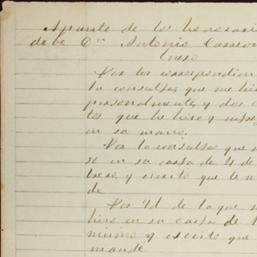 Apunte de los honorario
debe Dn Antonio
Por los correspondien
la consulta que me hi
personalmente, y dos e
tos que he hizo y
en su mano.
Por la consulta que
se en su casa de 4 de
y escrito que le
de
Por 11 de la que
hizo en su casa de
mismo, y escrito que
mande